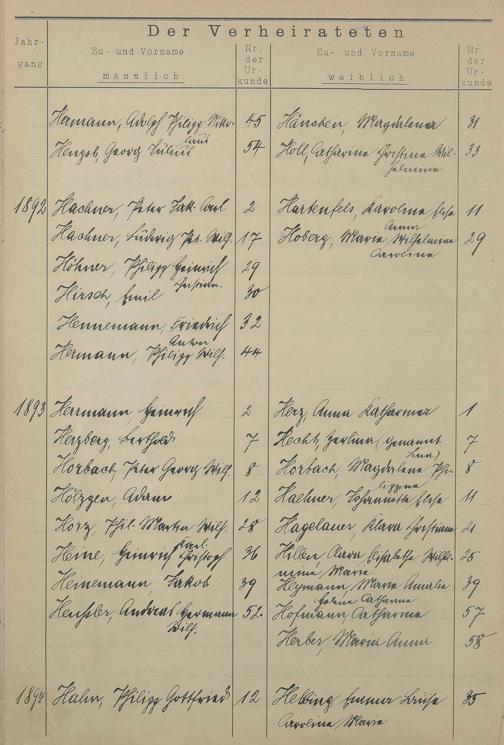 Der Verheirateten
Jahr-
gang
Zu- und Vorname
männlich
Nr.
der
Ur-
kunde
Zu- und Vorname
weiblich
Nr.
der
Ur-
kunde
Hermann, Adolf Philipp Niko- 45 Hänchen, Magdalena 31
laus
Hengst, Georg Julius 54 Höll, Catharine Christine Wil- 33
helmine
1892 Hachner, Peter Jakk. Carl 2 Hartenfels, Karoline Elise 11
Anna
Hachner, Ludwig Pet. Wilh. 17 Hoberg, Marie Wilhelmine 29
Caroline
Höhner, Philipp Heinrich 29
Christian
Hirsch, Emil 30
Hennemann, Friedrich 32
Anton
Hermann, Philipp Wilh. 44
1893 Herrmann Heinrich 2 Herz, Anna Katharina 1
Herzberg, Berthold 7 Hecht, Gerlina (genannt 7
Lina)
Horbach, Peter Georg Wilh. 8 Horbach, Magdalena Phi- 8
lippine
Hölzgen Adam 12 Haehner, Johannette Elise 11
Horz, Phil. Martin Wilh. 28 Hagelauer, Klara Christiane 21
Karl
Heine, Heinrich Christoph 36 Hillen, Clara Elisabetha Wilhel- 25
mine Marie
Heinemann, Jakob 39 Heymann, Maria Amalie 39
Catharine
Hentzler, Andreas Hermann 51 Hofmann Catharine 57
Wilh.
Herber, Maria Anna 58
1894 Hahn, Philipp Gottfried 12 Helbing Emma Luise 35
Caroline Marie